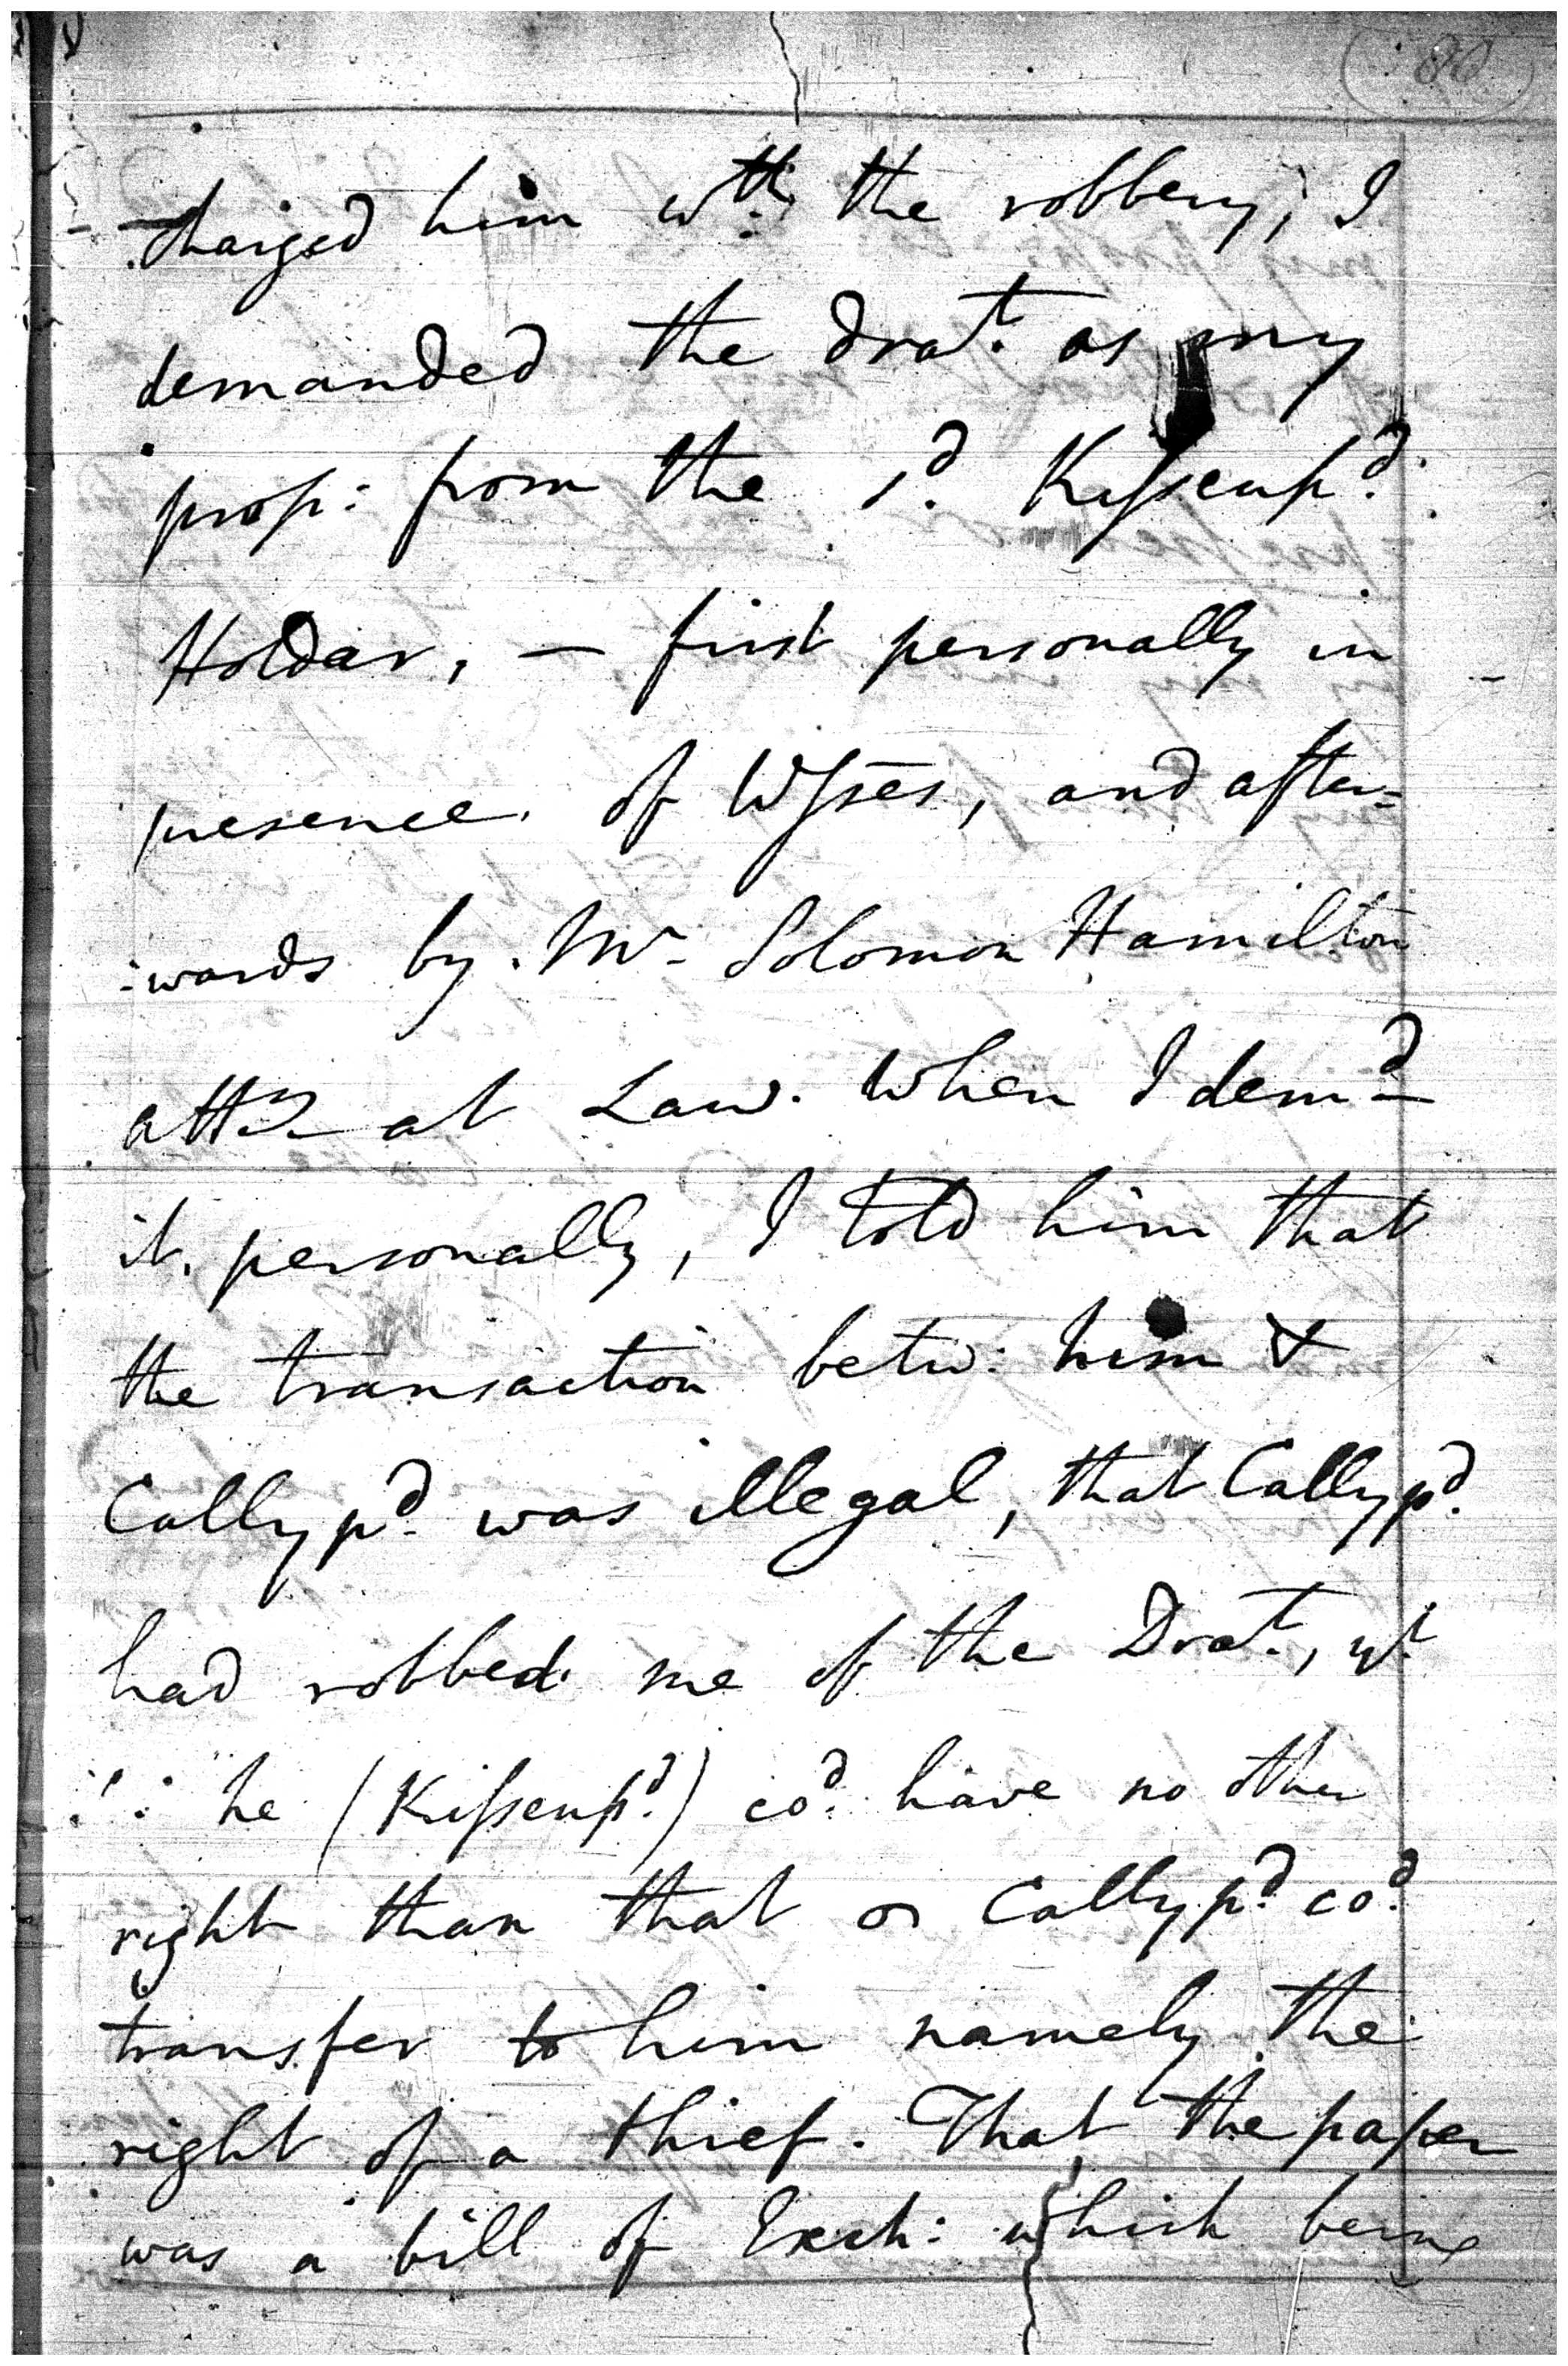 80
charged him wth. the robbery; I
demanded the drat. as my
prop: from the sd. Kissenpd.
Holdar, — first personally in
presence of Wsses, and after=
-wards by Mr. Solomon Hamilton
atty. at Law. When I demd.
it personally, I told him that
the transaction betw: him &
Callypd. was illegal, that Callypd.
had robbed me of the Drat., yt.
∴ he (Kissenpd.) cod. have no other
right than that Callypd. cod.
transfer to him namely the
right of a thief. That the paper
was a bill of Exch: which being